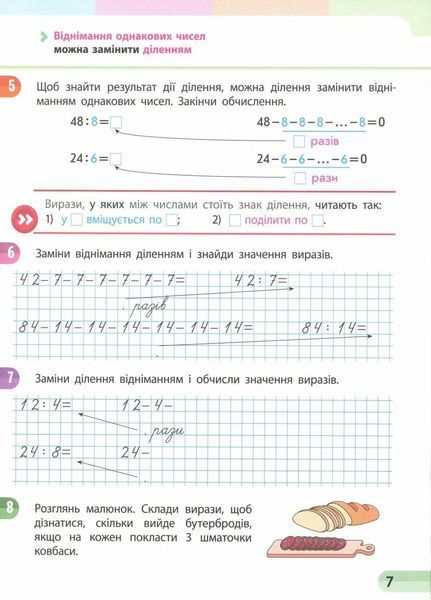 Віднімання однакових чисел
можна замінити діленням
5 Щоб знайти результат дії ділення, можна ділення замінити відні-
манням однакових чисел. Закінчи обчислення.
48:8=□ 48–8–8–8–...–8=0
□ разів
24:6=□ 24–6–6–...–6=0
□ рази
Вирази, у яких між числами стоїть знак ділення, читають так:
1) у □ вміщується по □; 2) □ поділити по □.
6 Заміни віднімання діленням і знайди значення виразів.
42–7–7–7–7–7–7= 42:7=
. разів
84–14–14–14–14–14–14= 84:14=
.
7 Заміни ділення відніманням і обчисли значення виразів.
12:4= 12–4–
. рази
24:8= 24–
.
8 Розглянь малюнок. Склади вирази, щоб
дізнатися, скільки вийде бутербродів,
якщо на кожен покласти 3 шматочки
ковбаси.
7